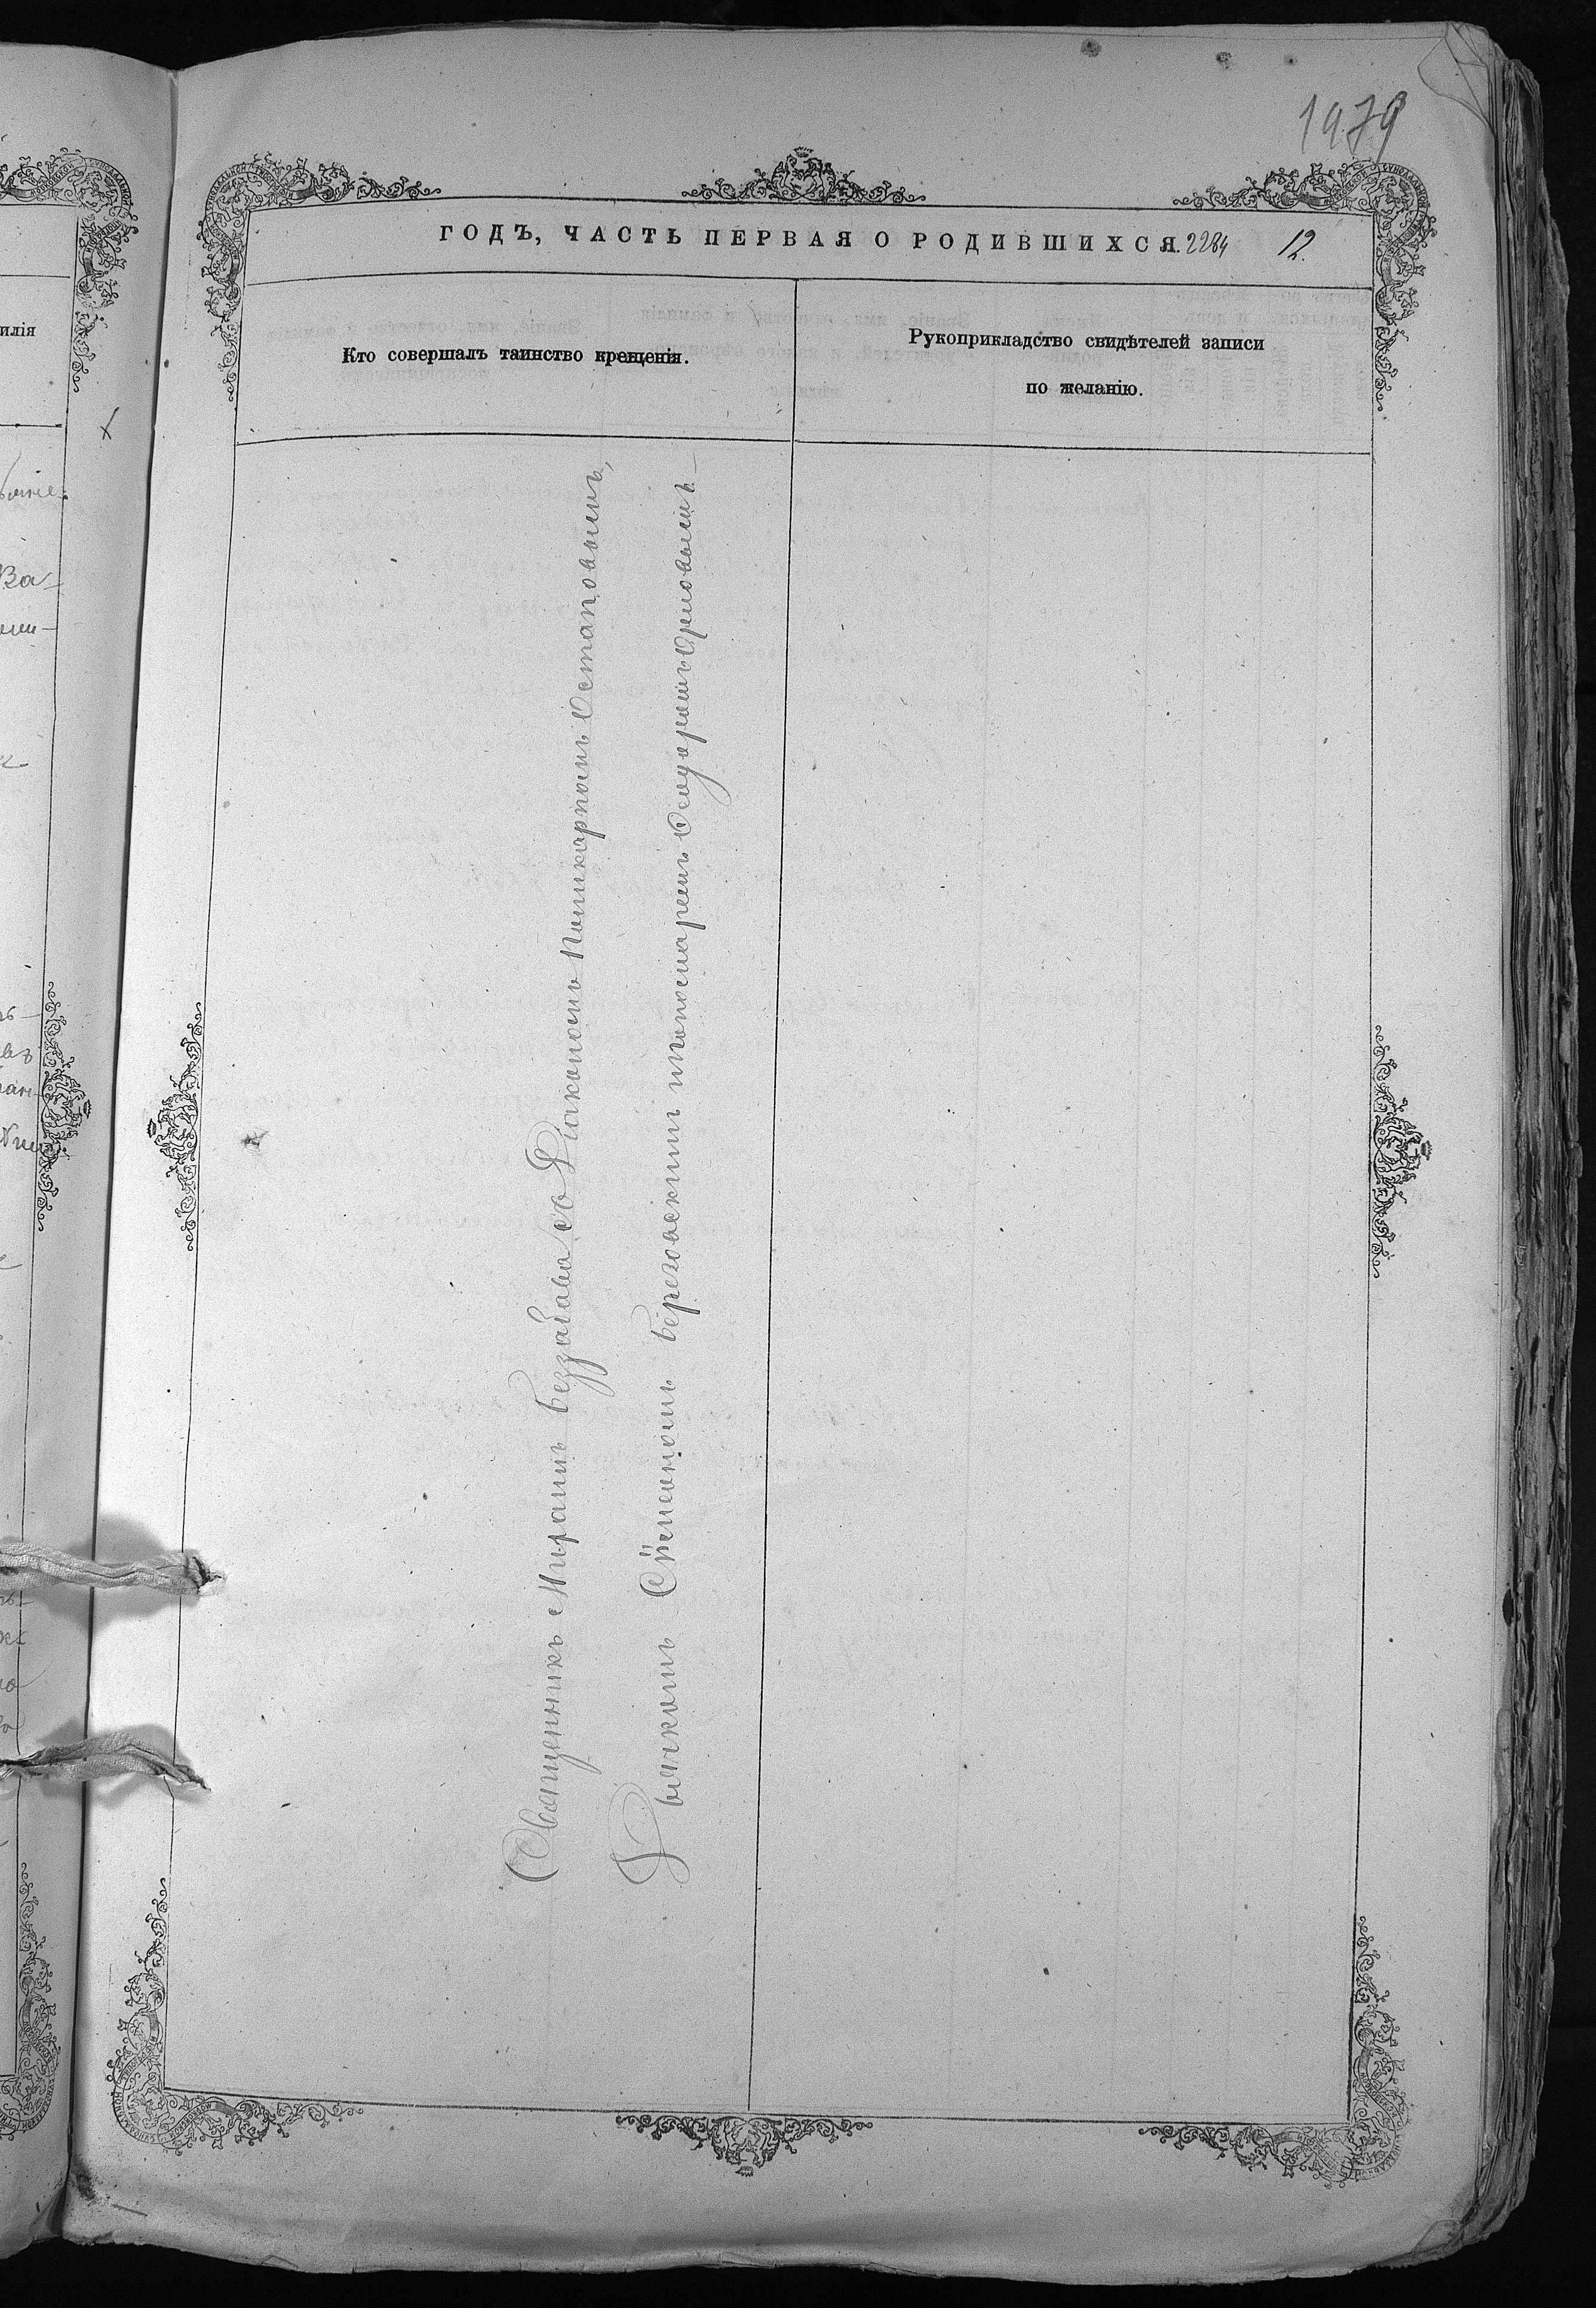 1979
ГОДЪ, ЧАСТЬ ПЕРВАЯ О РОДИВШИХСЯ. 2284 12.
илія
Кто совершалъ таинство крещенія.
Рукоприкладство свидѣтелей записи
по желанію.
Священникъ Миронъ съ Діакономъ Поликарпомъ Остаповымъ,
Дьячкомъ Симеономъ Березовскимъ и Пономаремъ Ѳеодоромъ